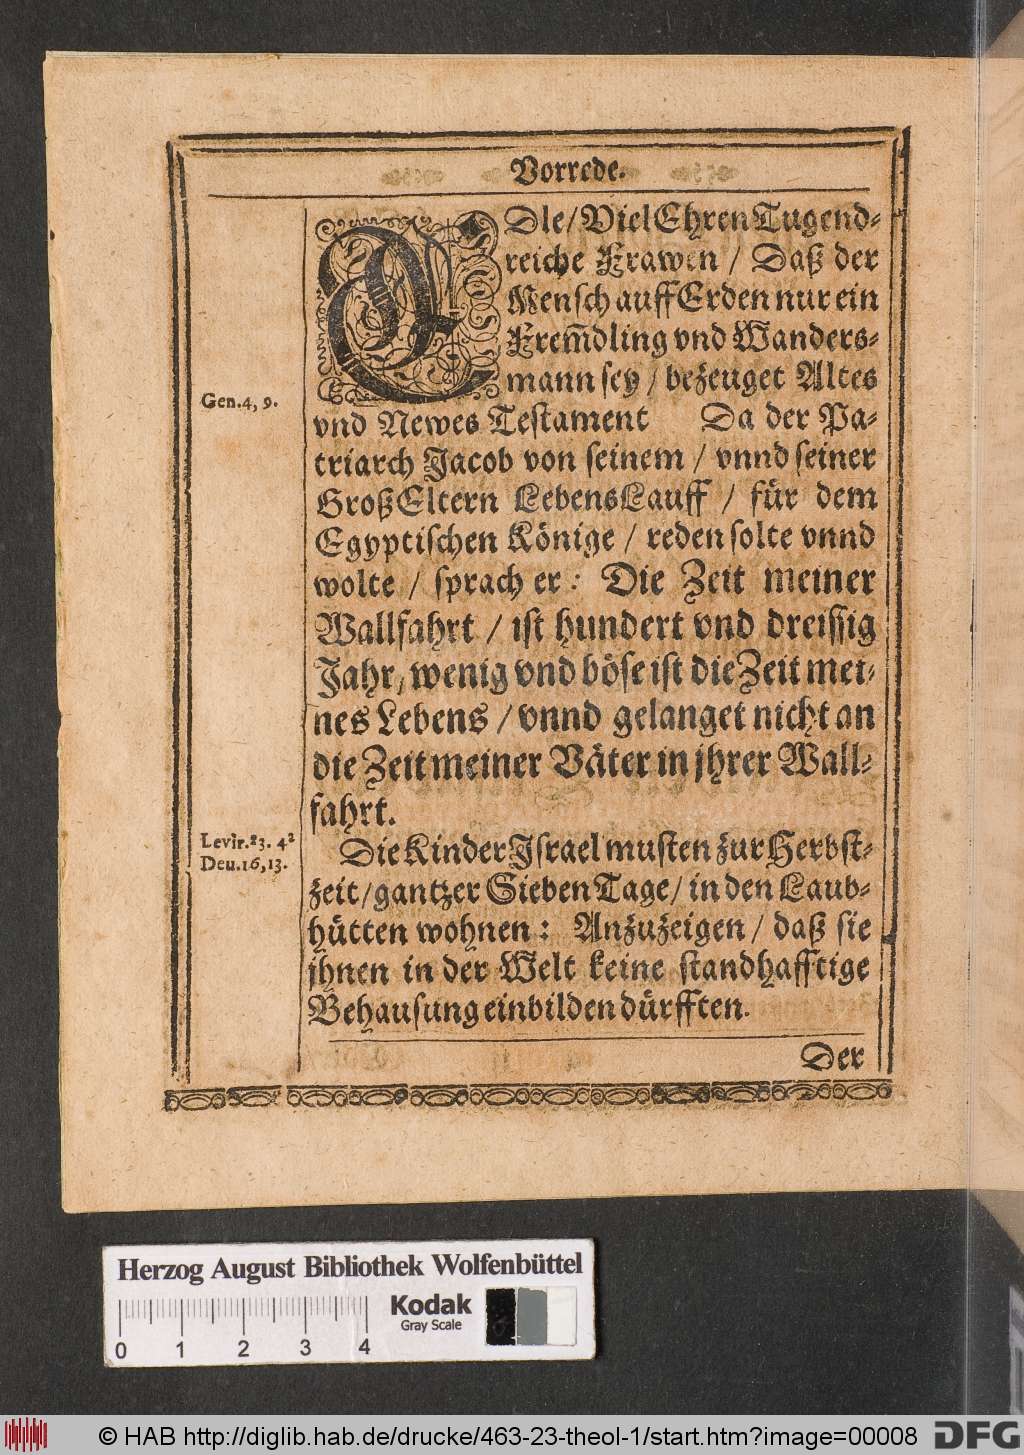 Vorrede.
EDle/ Viel Ehren Tugend-
reiche Frawen / Daß der
Mensch auff Erden nur ein
Frem̃dling vnd Wanders-
mann sey / bezeuget Altes
Gen.4, 9.
vnd Newes Testament Da der Pa-
triarch Jacob von seinem / vnnd seiner
GroßEltern LebensLauff / für dem
Egyptischen Könige / reden solte vnnd
wolte / sprach er: Die Zeit meiner
Wallfahrt / ist hundert vnd dreissig
Jahr, wenig vnd böse ist die Zeit mei-
nes Lebens / vnnd gelanget nicht an
die Zeit meiner Väter in jhrer Wall-
fahrt.
Levit.23. 42
Deu.16,13.
Die Kinder Israel musten zur Herbst-
zeit/ gantzer Sieben Tage/ in den Laub-
hütten wohnen: Anzuzeigen / daß sie
jhnen in der Welt keine standhafftige
Behausung einbilden dürfften.
Der
Herzog August Bibliothek Wolfenbüttel
Kodak
Gray Scale
0 1 2 3 4
© HAB http://diglib.hab.de/drucke/463-23-theol-1/start.htm?image=00008
DFG